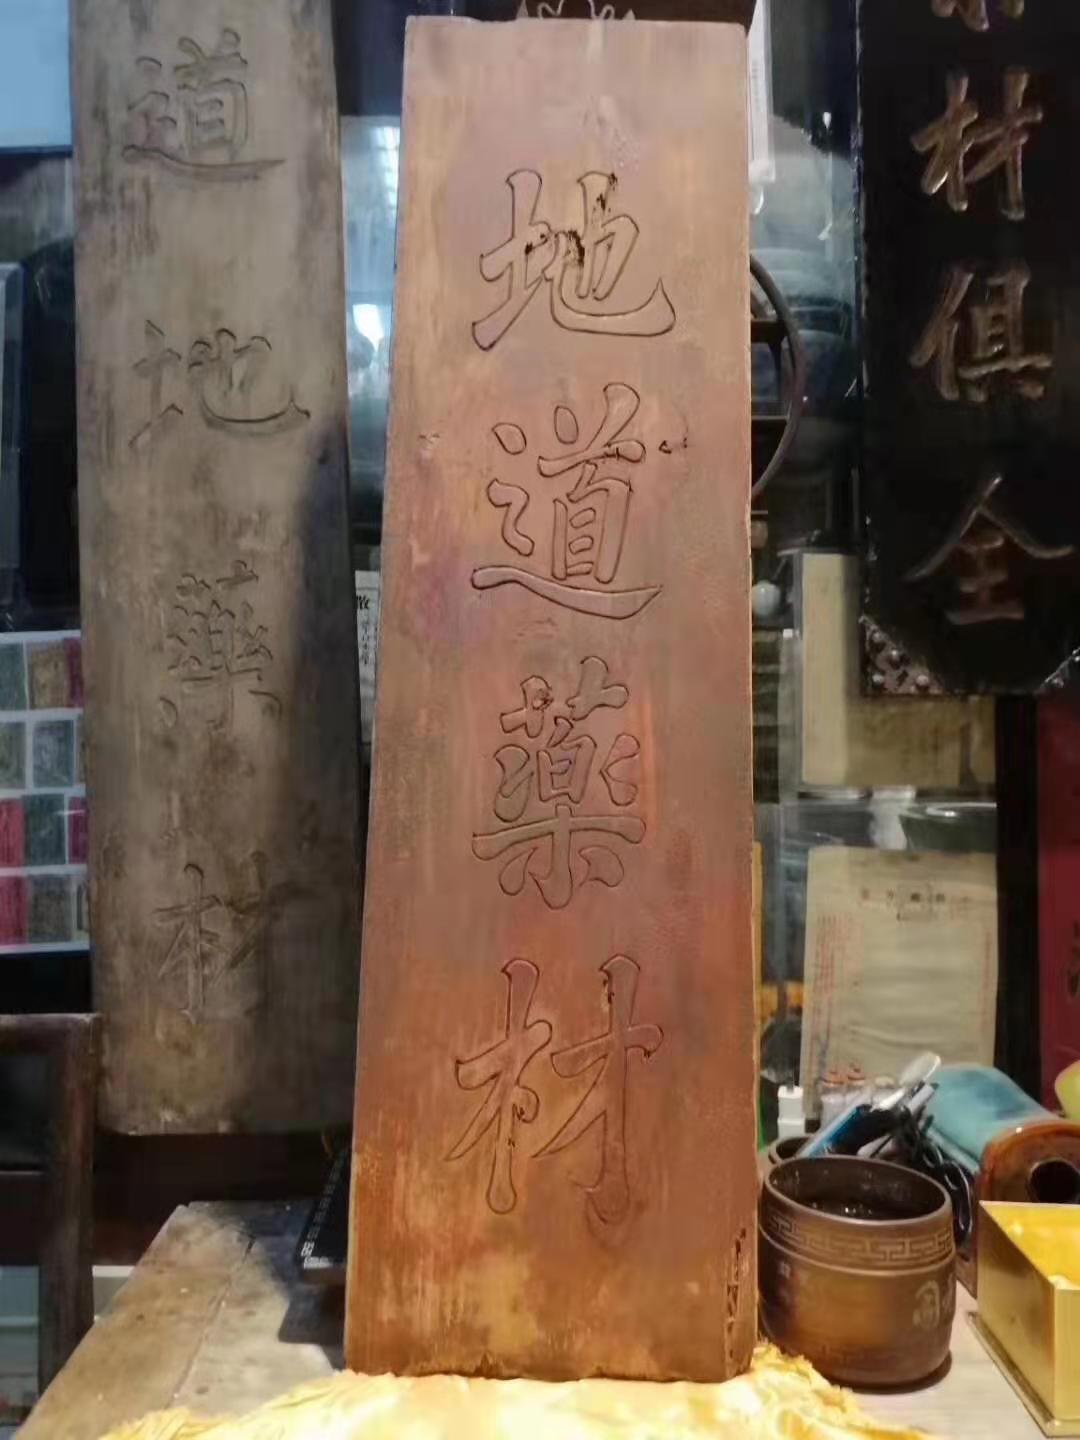 地道薬材
道地藥材
材俱全